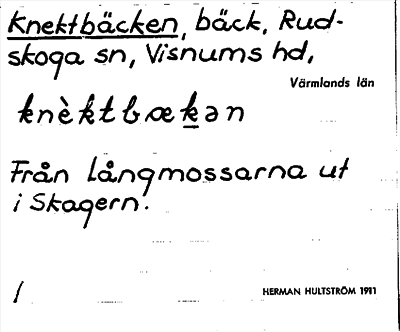 Knektbäcken, bäck, Rud-
skoga sn, Visnums hd,
Värmlands län
knèktbækən
Från Långmossarna ut
i Skagern.
/
HERMAN HULTSTRÖM 1911